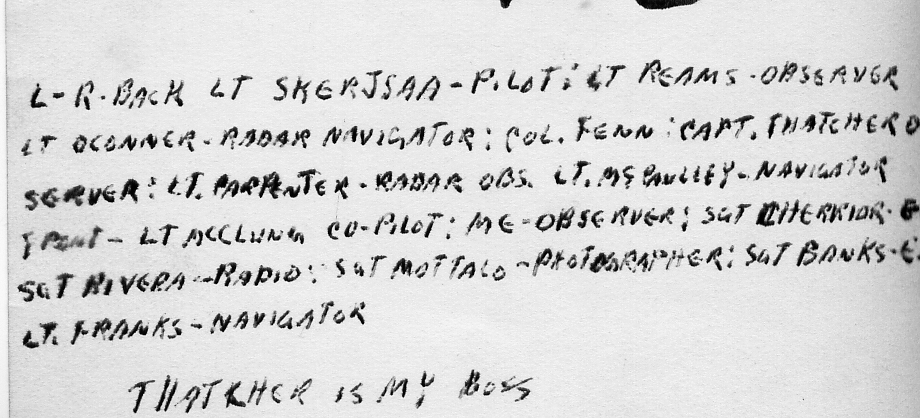 L-R-BACK LT SKERJSAA-PILOT; LT REAMS-OBSERVER
LT OCONNER-RADAR NAVIGATOR; COL. FENN; CAPT. THATCHER O
SERVER; LT. CARPENTER-RADAR OBS. LT. MCCAULLEY-NAVIGATOR
FRONT- LT MCCLUNG CO-PILOT; ME-OBSERVER; SGT CHERRIOR-E
SGT RIVERA-RADIO; SGT MOTTALO-PHOTOGRAPHER; SGT BANKS-E.
LT. FRANKS-NAVIGATOR
THATCHER IS MY BOSS